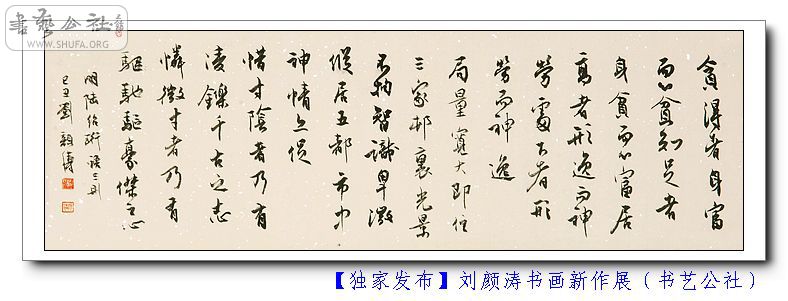 書藝公社
WWW.SHUFA.ORG
貪得者身富
而心貧知足者
身貧而心富居
高者形逸而神
勞處下者形
勞而神逸
局量寬大即住
三家邨裏光景
不拘智識卑微
縱居五都市中
神情亦促
惜寸陰者乃有
凌鑠千古之志
憐微才者乃有
驅馳驅豪傑之心
明陸紹珩語三則
己丑劉顏濤
【独家发布】刘颜涛书画新作展（书艺公社）